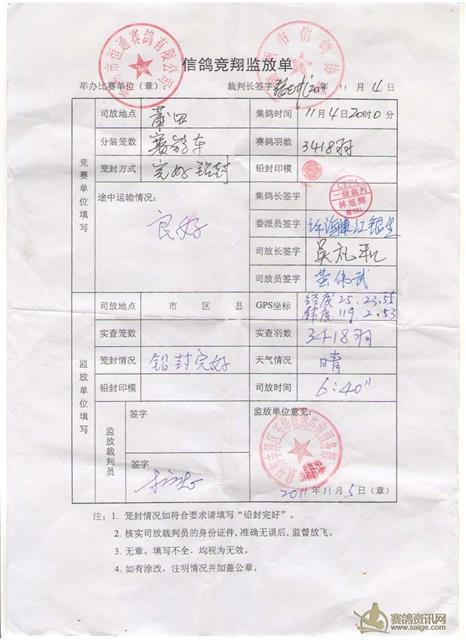 信鸽竞翔监放单
举办比赛单位（章）： 裁判长签字 11月4日
竞赛单位填写
司放地点 莆田 集鸽时间 11月4日20时0分
分装笼数 赛鸽车 赛鸽羽数 3418羽
笼封方式 完好铅封 铅封印模
途中运输情况： 良好 集鸽长签字 CRPA 一级裁判 林旭辉
委派员签字
司放长签字 吴礼
司放员签字 黄伟武
监放单位填写
司放地点 市 区 县 GPS坐标 经度25.23.55 韩度119.2.53
实查笼数 实查羽数 3418羽
笼封情况 铅封完好 天气情况 晴
铅封印模 司放时间 6:40"
监放裁判员 签字 监放单位意见：
签字
2011年11月5日（章）
注：1. 笼封情况如符合要求请填写“铅封完好”。
2. 核实司放裁判员的身份证件，准确无误后，监督放飞。
3. 无章、填写不全，均视为无效。
4. 如有涂改，注明情况并加盖公章。
赛鸽资讯网
www.saige.com